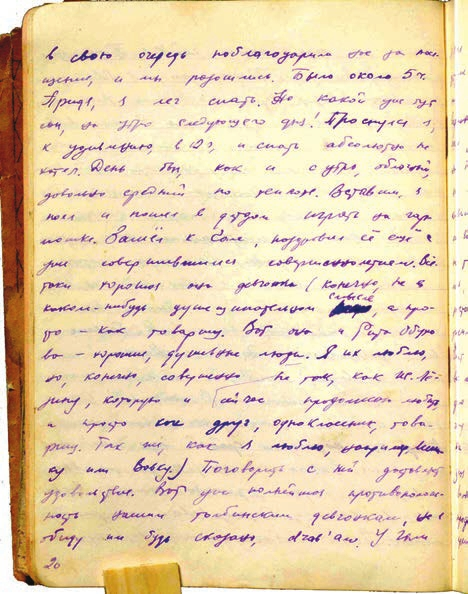 в свою очередь поблагодарила нас за посе-
щение, и мы разошлись. Было около 5 ч.
Придя, я лег спать. Но какой уже тут
сон, на утро следующего дня! Проснулся я,
к удивлению в 12, и спать абсолютно не
хотел. День был, как и с утра, облачный,
довольно средний по теплоте. Вставши, я
поел и пошел в детдом играть на гар-
мошке. Зашёл к Соне, поздравил её ещё с
уже совершившимся совершеннолетием. Всё-
таки хорошая она девчонка (конечно, не в
каком-нибудь душещипательном смысле, а про-
сто как товарищ. Вот она и Рита Обухо
ва - хорошие, душевные люди. Я их люблю,
но, конечно, совершенно не так, как
которую и сейчас продолжаю любить,
а просто как друг, одноклассник, това-
рищ. Так же, как я люблю, например
ку или Вовку.) Поговорить с ней доставляет
удовольствие. Вот уже полнейшая противополож-
ность нашим девчонкам, не в
обиду им будь сказано, У Гали
20